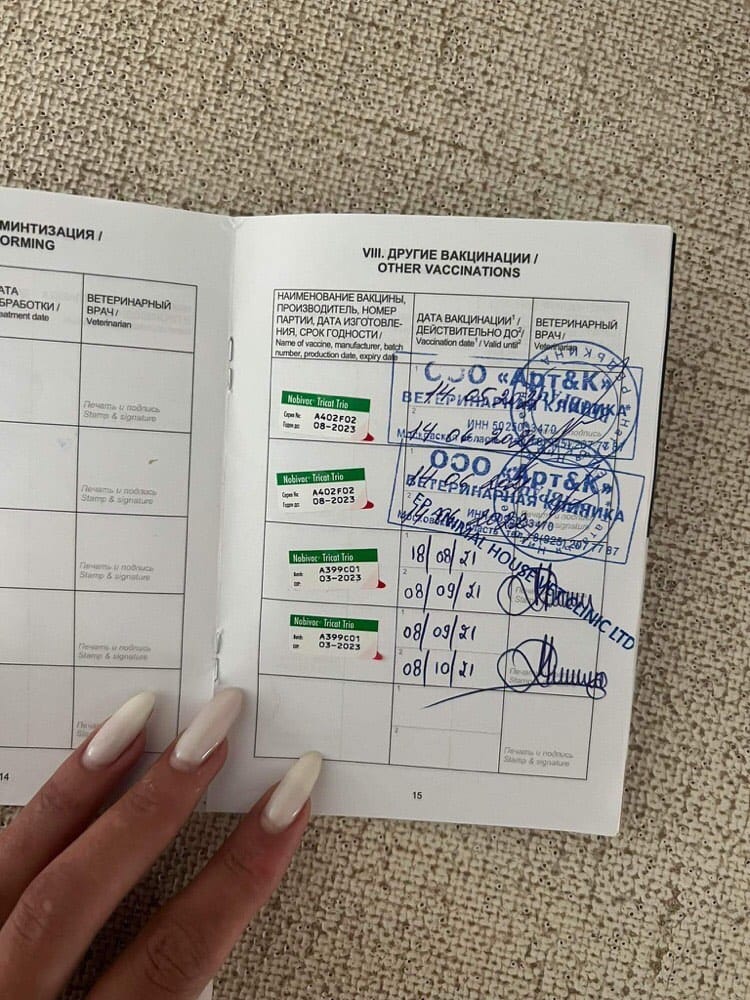 МИНТИЗАЦИЯ /
ORMING
АТА
БРАБОТКИ /
eatment date
ВЕТЕРИНАРНЫЙ
ВРАЧ /
Veterinarian
Печать и подпись
Stamp & signature
Печать и подпись
Stamp & signature
Печать и подпись
Stamp & signature
Печать и подпись
Stamp & signature
14
VIII. ДРУГИЕ ВАКЦИНАЦИИ /
OTHER VACCINATIONS
НАИМЕНОВАНИЕ ВАКЦИНЫ,
ПРОИЗВОДИТЕЛЬ, НОМЕР
ПАРТИИ, ДАТА ИЗГОТОВЛЕ-
НИЯ, СРОК ГОДНОСТИ /
Name of vaccine, manufacturer, batch
number, production date, expiry date
ДАТА ВАКЦИНАЦИИ¹ /
ДЕЙСТВИТЕЛЬНО ДО²/
Vaccination date¹ / Valid until²
ВЕТЕРИНАРНЫЙ
ВРАЧ /
Veterinarian
Nobivac Tricat Trio
Серия №: A402F02
Годен до: 08-2023
ООО «Арт&К»
ВЕТЕРИНАРНАЯ КЛИНИКА
ИНН 5025033470
Московская область
Nobivac Tricat Trio
Серия №: A402F02
Годен до: 08-2023
ООО «Арт&К»
ВЕТЕРИНАРНАЯ КЛИНИКА
Московская область тел. 8(925) 207 77 87
Nobivac Tricat Trio
A399C01
03-2023
1
18/08/21
2
08/09/21
HOUSE VET CLINIC LTD
Nobivac Tricat Trio
A399C01
03-2023
1
08/09/21
2
08/10/21
1
2
Печать и подпись
Stamp & signature
15